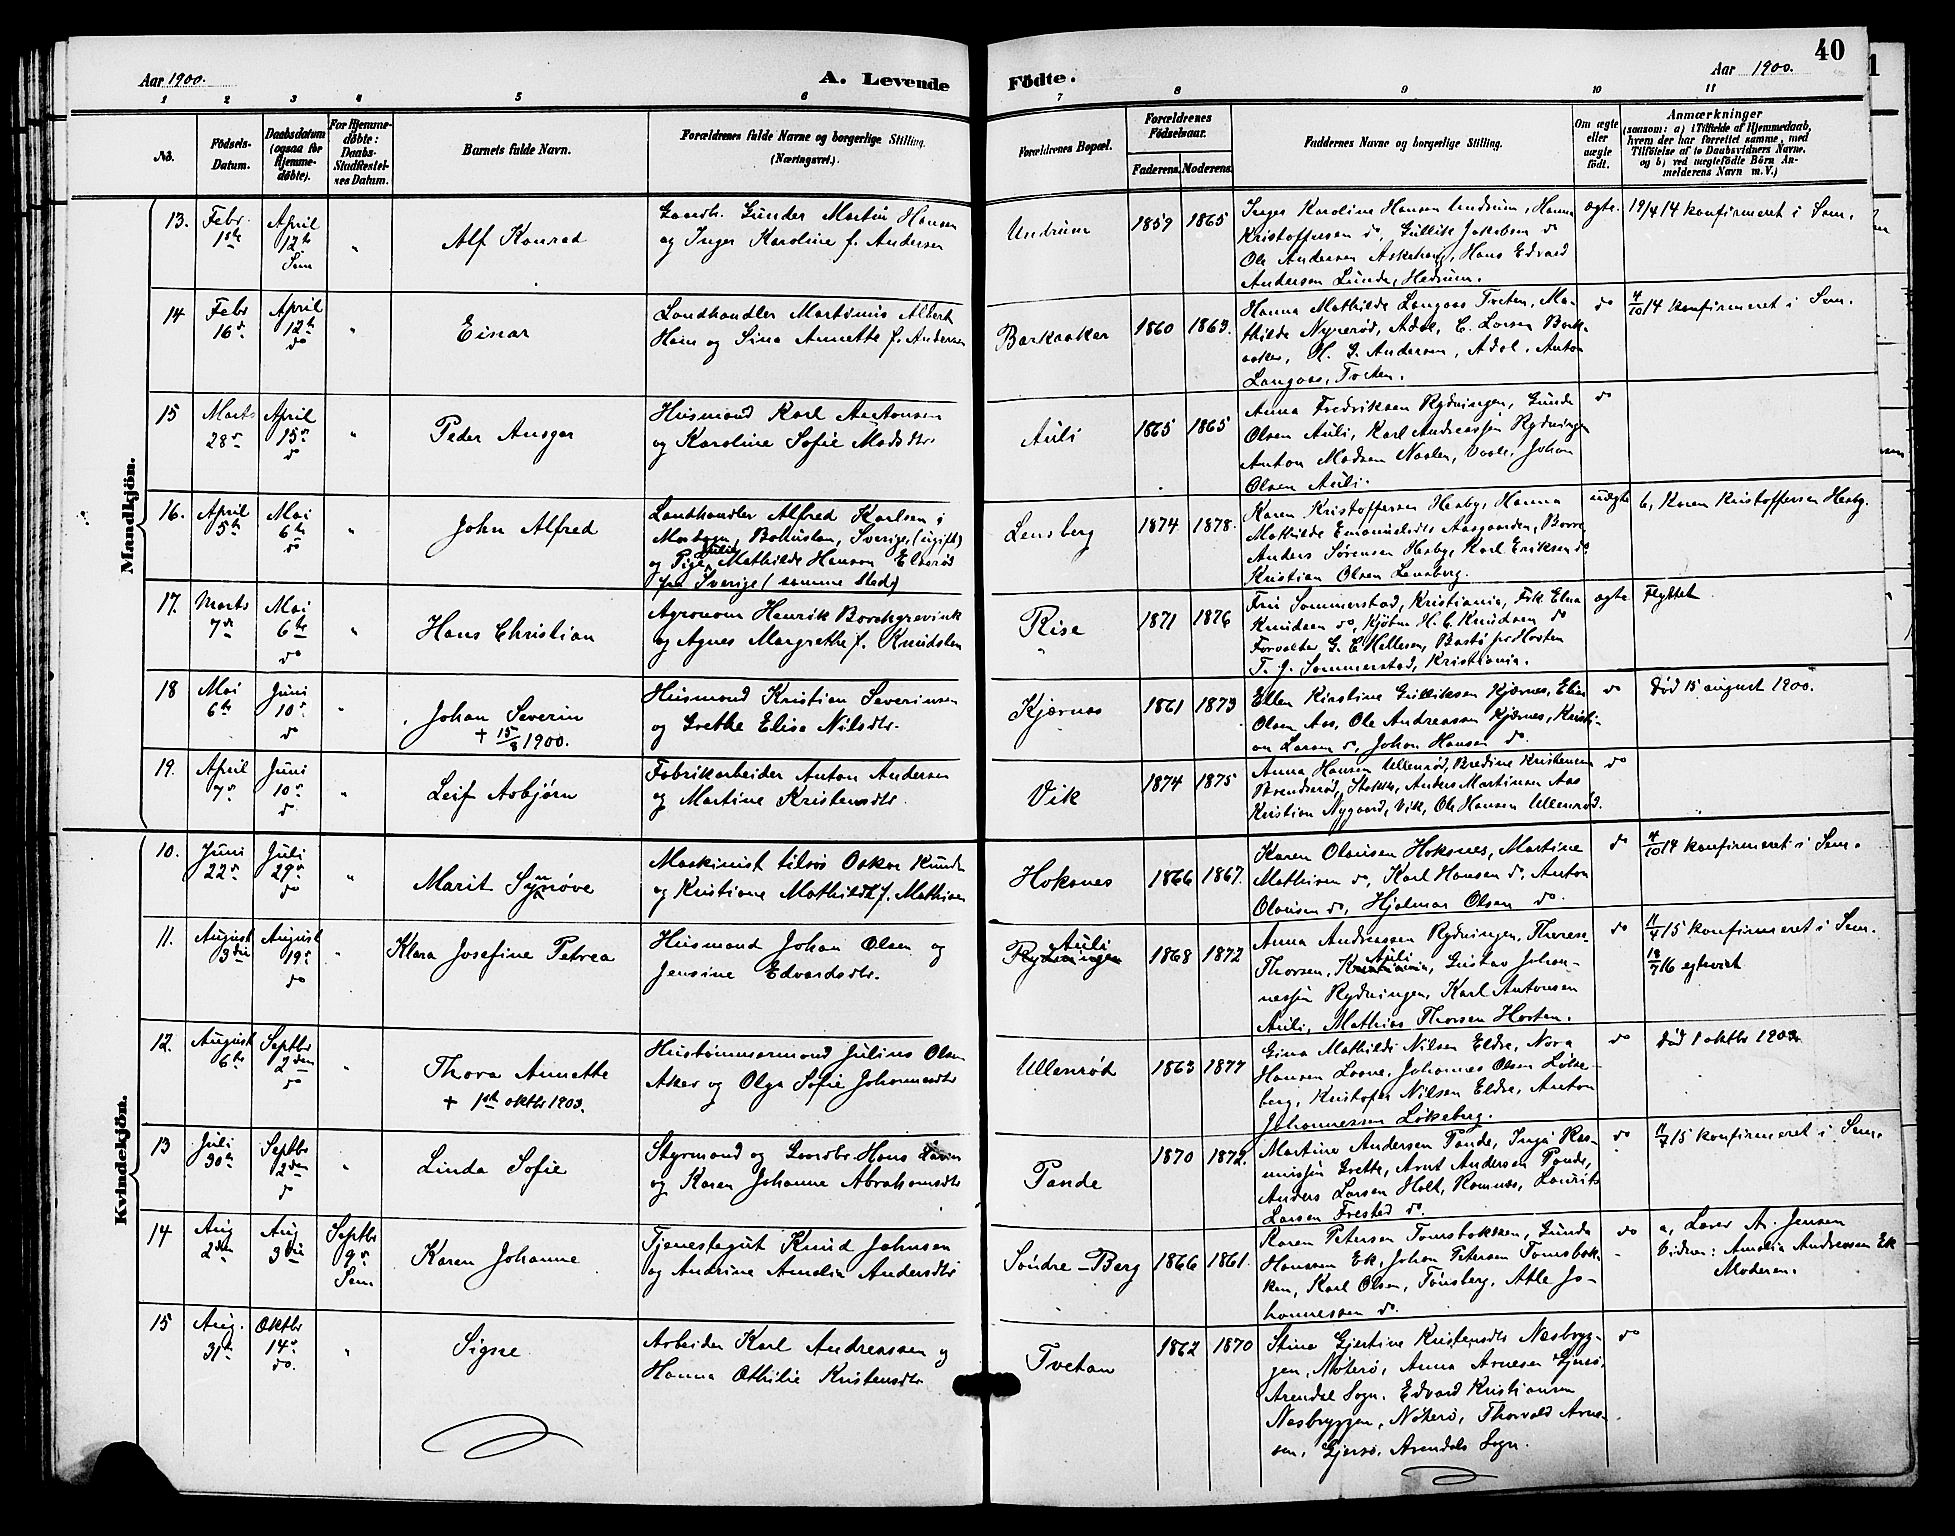 Aar 1900.
A. Levende
Födte.
Aar 1900.
40
1 2 3 4 5 6 7 8 9 10 11
No.
Födsels-
Datum.
Daabsdatum
(ogsaa for
Hjemme-
döbte).
For Hjemme-
döbte:
Daabs-
Stadfæstel-
ses Datum.
Barnets fulde Navn.
Forældrenes fulde Navne og borgerlige Stilling.
(Næringsvei.)
Forældrenes Bopæl.
Forældrenes
Födselsaar.
Faderens. Moderens.
Faddernes Navne og borgerlige Stilling.
Om ægte
eller
uægte
födt.
Anmærkninger
(saasom: a) i Tilfælde af Hjemmedaab,
hvem der har forrettet samme, med
Tilföielse af to Daabsvidners Navne,
og b) ved uægtefödte Börn An-
melderens Navn m. V.)
Mandkjön.
13.
Febr.
1ste
April
12te
Sem
"
Alf Konrad
Gaardb. Gunder Martin Hansen
og Inger Karoline f. Andersen
Undrum
1859 1865
Inger Karoline Hansen Undrum, Hanna
Kristoffersen do, Gullik Jakobsen do
Ole Andersen Askehaug, Hans Edvard
Andersen Lunde, Hedrum.
ægte.
19/4 14 konfirmeret i Sem.
14
Febr
16de
April
12te
do
"
Einar
Landhandler Martinus Albert
Hem og Sina Annette f. Andersen
Barkaaker
1860 1863.
Hanna Mathilde Langaas Tveten, Ma-
thilde Nynerød, Adal, C. Larsen Bark-
aaker, H. G. Andersen, Adal, Anton
Langaas, Tveten.
do
4/10 14 konfirmeret i Sem.
15
Marts
28de
April
15de
do
"
Peder Ansgar
Husmand Karl Antonsen
og Karoline Sofie Madsdtr.
Auli
1865 1865
Anna Fredriksen Rydningen, Gunda
Olsen Auli, Karl Andreassen Rydningen
Anton Madsen Naalen, Vaale, Johan
Olsen Auli.
do
16.
April
5te
Mai
6te
do
"
John Alfred
Landhandler Alfred Karlsen i
Bohuslen, Sverige, (ugift)
og Pige Julie Mathilde Hanson
fra Sverige (samme Sted)
Lensberg
1874 1878.
Karen Kristoffersen Hesby, Hanna
Mathilde Emanuelsdtr Aasgaarden, Borre
Anders Sørensen Hesby, Karl Eriksen do
Kristian Olsen Lensberg.
uægte
b, Karen Kristoffersen Hesby.
17.
Marts
7de
Mai
6te
do
"
Hans Christian
Agronom Henrik Borchgrevink
og Agnes Margrethe f. Knudsen
Rise
1871 1876
Fru Sommerstad, Kristiania, Frk. Elna
Knudsen do, Kjøbm. H. C. Knudsen do
Forvalter G. C. Hellesen, Bastø pr Horten
T. J. Sommerstad, Kristiania.
ægte
Flyttet
18
Mai
6te
Juni
10de
do
"
Johan Severin
+ 15/8 1900.
Husmand Kristian Severinsen
og Grethe Elise Nilsdtr.
Kjærnes
1861 1873
Ellen Kirstine Gulliksen Kjærnes, Elen
Olsen Aas, Ole Andreassen Kjærnes, Kristi-
an Larsen do, Johan Hansen do.
do
Død 15 august 1900.
19.
April
7de
Juni
10de
do
"
Leif Asbjørn
Fabrikarbeider Anton Andersen
og Martine Kristensdtr.
Vik
1874 1875
Anna Hansen Ullenrød, Bredine Kristensen
Brendsrød, Stokke, Anders Martinsen Aas
Kristian Nygaard, Vik, Ole Hansen Ullenrød.
do
Kvindekjön.
10.
Juni
22de
Juli
29de
do
"
Marit Synnøve
Maskinist tilsøs Oskar Kunde
og Kristiane Mathilde f. Mathisen
Hoksnes
1866 1867.
Karen Olausen Hoksnes, Martine
Mathisen do, Karl Hansen do, Anton
Olausen do, Hjalmar Olsen do.
do
4/10 14 konfirmeret i Sem.
11.
August
3die
August
19de
do
"
Klara Josefine Petrea
Husmand Johan Olsen og
Jensine Edvardsdtr.
Auli
Rydningen
1868 1872
Anna Andreassen Rydningen, Therese
Thorsen, Kristiania, Auli Gustav Johan-
nessen Rydningen, Karl Antonsen
Auli, Mathias Thorsen Horten.
do
11/4 15 konfirmeret i Sem.
18/7 16 egteviet
12.
August
6te
Septbr
2den
do
"
Thora Annette
+ 1ste oktbr 1903.
Hustømmermand Julius Olsen
Aker og Olga Sofie Johannesdtr
Ullenrød
1863 1877
Gina Mathilde Nilsen Eldre, Nora
Hansen Loone, Johannes Olsen Løke-
berg, Kristofer Nilsen Eldre, Anton
Johannessen Løkeberg.
do
Død 1 oktbr 1903.
13
Juli
30te
Septbr
2den
do
"
Linda Sofie
Styrmand og Gaardbr Hans Larsen
og Karen Johanne Abrahamsdtr
Pande
1870 1872.
Martine Andersen Pande, Inga Ras-
mussen Grette, Arnt Andersen Pande,
Anders Larsen Holt, Ramnes, Laurits
Larsen Frestad do.
do
11/4 15 konfirmeret i Sem.
14
Aug
2den
Aug
3die
Septbr
9de
Sem
Karen Johanne
Tjenestegut Knud Johnsen
og Andrine Amalie Andersdtr
Søndre-Berg
1866 1861.
Karen Petersen Tomsbakken, Gunda
Hanssen Ek, Johan Petersen Tomsbak-
ken, Karl Olsen, Tønsberg, Atle Jo-
hannessen do.
do
a, Lærer A. Jensen
Vidner: Amalia Andreassen Ek
Moderen.
15
Aug.
31te
Oktbr
14de
do.
"
Signe
Arbeider Karl Andreassen og
Hanna Othilie Kristensdtr
Tvetan
1862 1870
Stina Gjertine Kristensdtr Næsbryg-
gen, Nøterø, Anna Arnesen Gjersø,
Arendal Sogn, Edvard Kristiansen
Næsbryggen, Nøterø, Thorvald Arne-
sen, Gjersø, Arendals Sogn.
do